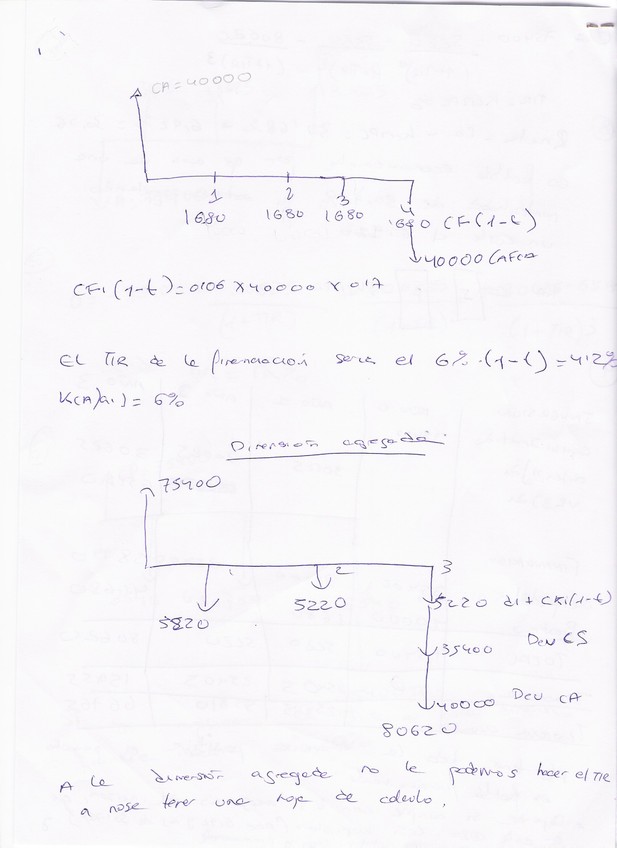 CA = 40000
1 2 3 4
1680 1680 1680 1680 CF(1-t)
40000 CAFCA
CFi (1-t) = 0'06 x 40000 x 0'7
El TIR de la financiacion seria el 6% · (1-t) = 4'2%
K(A)ai) = 6%
Dimension agregada
75400
1 2 3
5820 5220 5220 di + CKi(1-t)
35400 Dev CS
40000 Dev CA
80620
A la dimensión agregada no le podemos hacer el TIR
a nose tener una hoja de calculo.